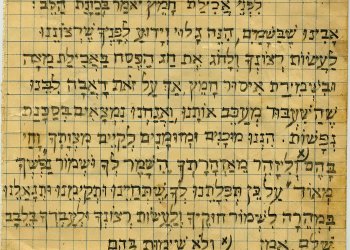 לפני אכילת חמץ יאמר בכונת הלב:
אבינו שבשמים, הנה גלוי וידוע לפניך שרצוננו
לעשות רצונך ולחוג את חג הפסח באכילת מצה
ובשמירת איסור חמץ, אך על זאת דאבה לבנו
שהשעבוד מעכב אותנו, ואנחנו נמצאים בסכנת
נפשות. הננו מוכנים ומזומנים לקיים מצותך וחי
בהם x) וליזהר מאזהרתך השמר לך ושמור נפשך
מאוד על כן תפלתנו לך שתחיינו ותקימנו ותגאלנו
במהרה לשמור חוקיך ולעשות רצונך ולעבדך בלבב
שלם אמן x) ולא שימות בהם